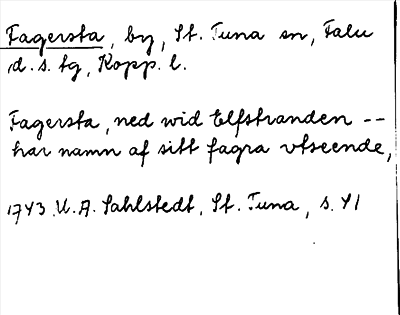 Fagersta, by, St. Tuna sn, Falu
d. s. tg, Kopp. l.
Fagersta, ned wid Elfstranden --
har namn af sitt fagra utseende,
1743. U. A. Sahlstedt, St. Tuna, s. 41